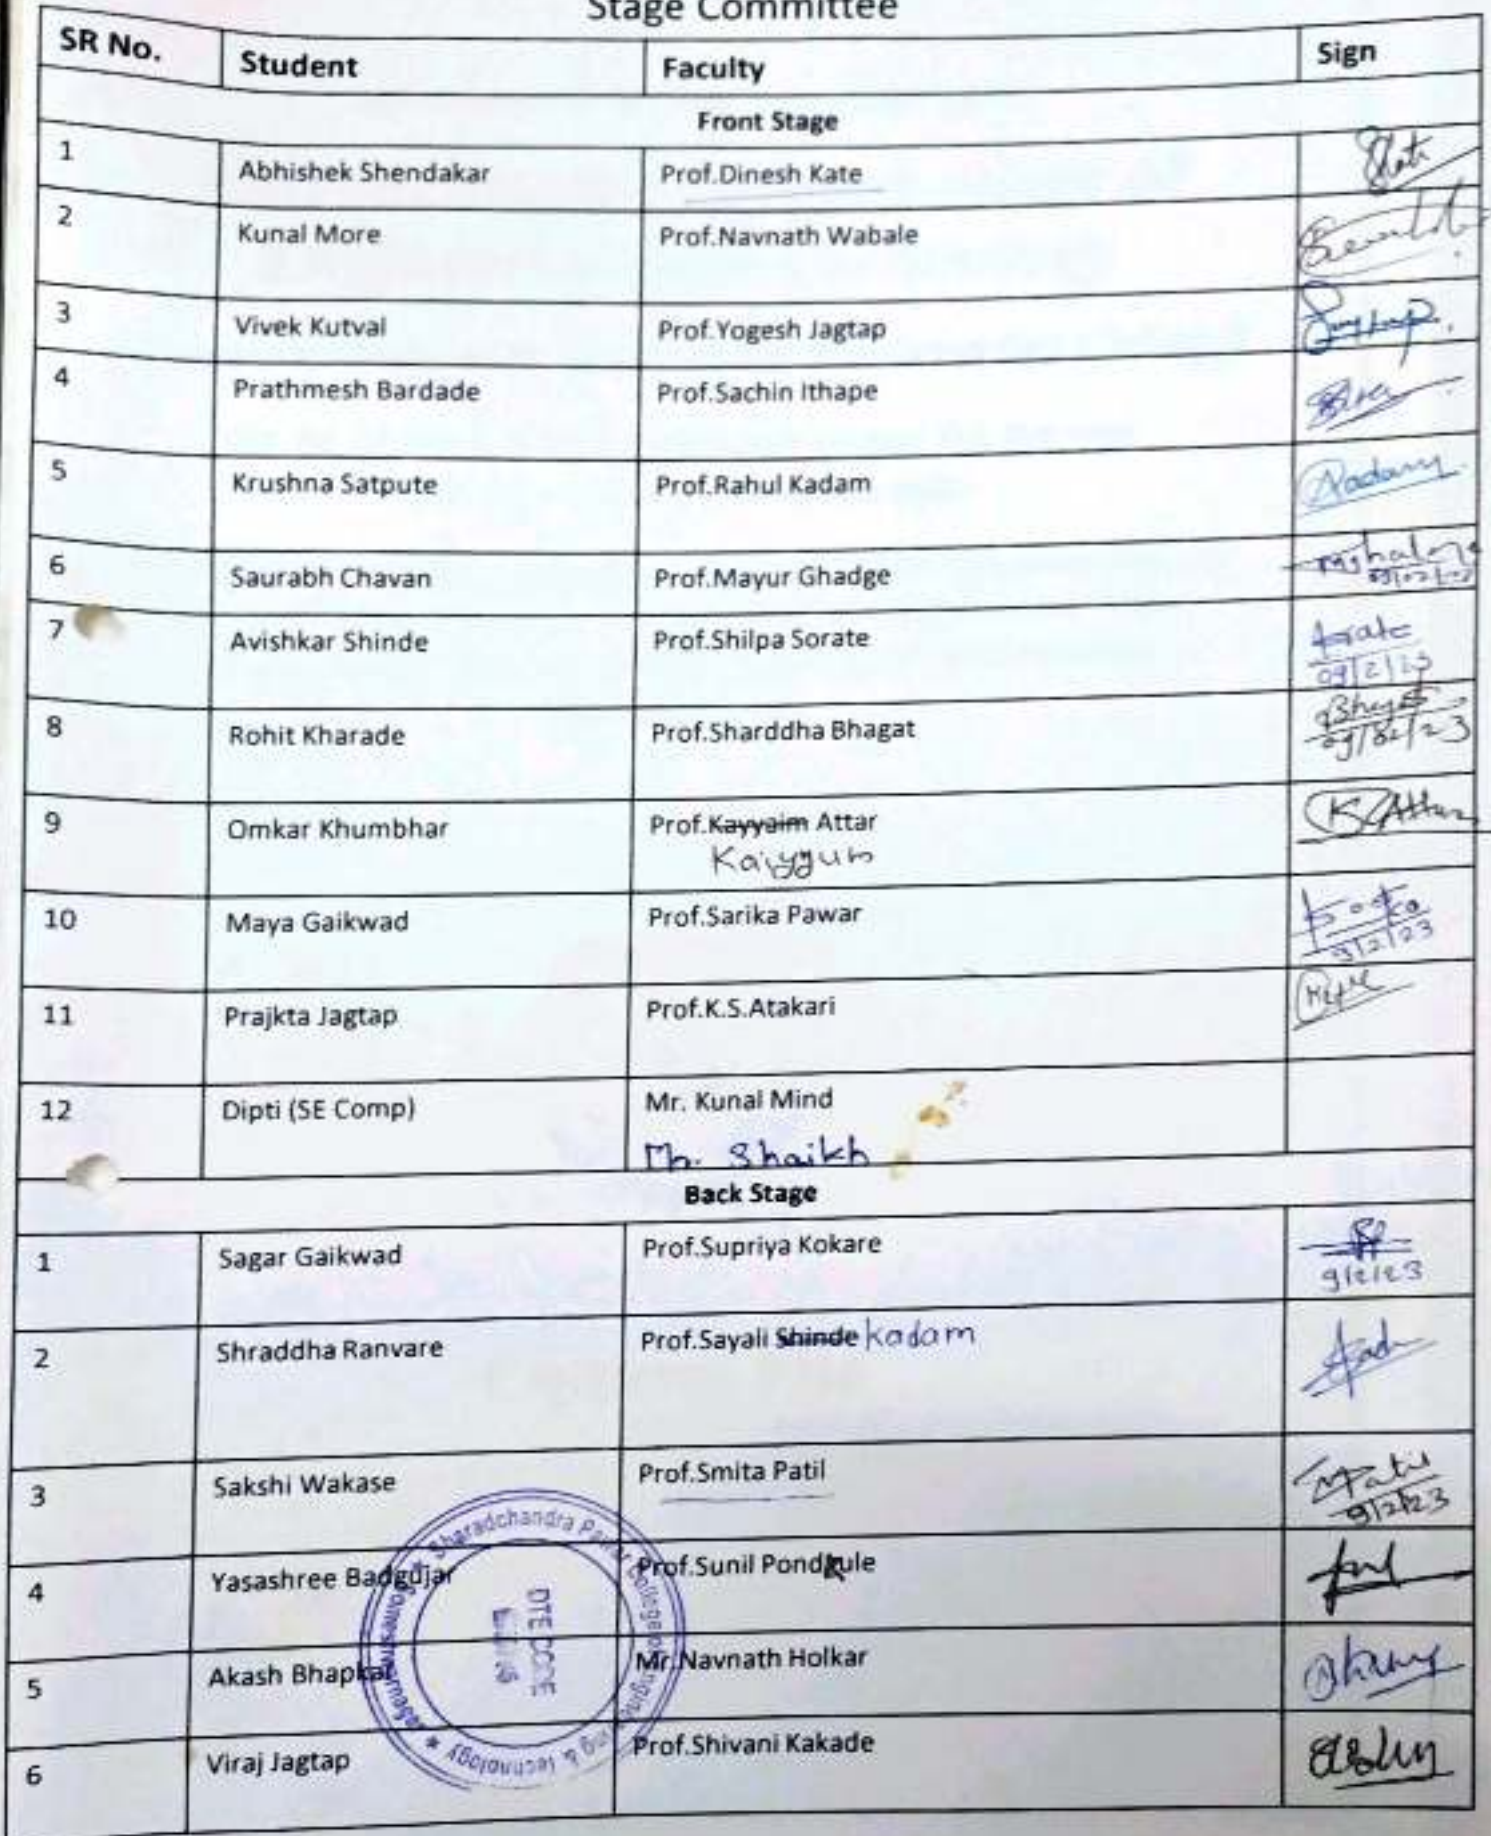 Stage Committee
SR No. Student Faculty Sign
Front Stage
1 Abhishek Shendakar Prof.Dinesh Kate
2 Kunal More Prof.Navnath Wabale
3 Vivek Kutval Prof.Yogesh Jagtap
4 Prathmesh Bardade Prof.Sachin Ithape
5 Krushna Satpute Prof.Rahul Kadam
6 Saurabh Chavan Prof.Mayur Ghadge
7 Avishkar Shinde Prof.Shilpa Sorate
09/2/23
8 Rohit Kharade Prof.Sharddha Bhagat
09/02/23
9 Omkar Khumbhar Prof.Kayyaim Attar K Attar
Kaiyyum
10 Maya Gaikwad Prof.Sarika Pawar
9/2/23
11 Prajkta Jagtap Prof.K.S.Atakari
12 Dipti (SE Comp) Mr. Kunal Mind
Shaikh
Back Stage
1 Sagar Gaikwad Prof.Supriya Kokare
9/2/23
2 Shraddha Ranvare Prof.Sayali Shinde Kadam
3 Sakshi Wakase Prof.Smita Patil
9/2/23
4 Yasashree Badgujar Prof.Sunil Pondkule
5 Akash Bhapkar Mr.Navnath Holkar
6 Viraj Jagtap Prof.Shivani Kakade
Sharadchandra Pawar College of Engineering & Technology
DTE CODE